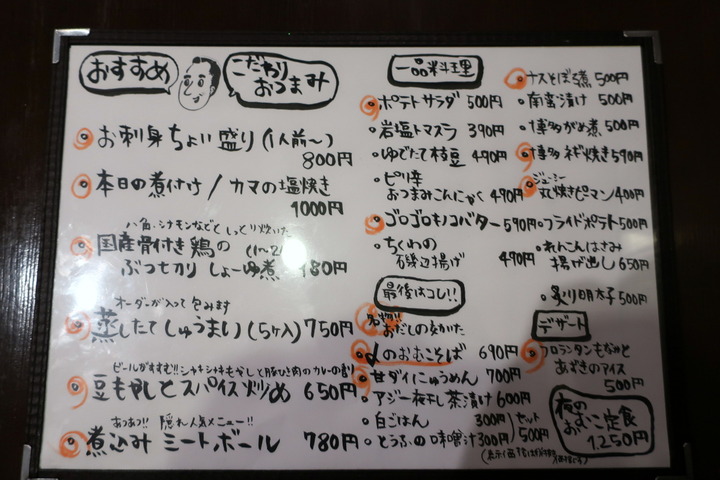 おすすめ
こだわり
おつまみ
お刺身ちょい盛り(1人前〜)
800円
本日の煮付け/カマの塩焼き
1000円
八角、シナモンなどとしっとり炊いた
国産骨付き鶏の
ぶつ切りしょーゆ煮 180円
オーダーが入って包みます
蒸したてしゅうまい(5ヶ入) 750円
ビールがすすむ!!シャキシャキもやしと豚ひき肉のカレーの香り
豆もやしとスパイス炒め 650円
あつあつ!! 隠れ人気メニュー!!
煮込みミートボール 780円
一品料理
ポテトサラダ 500円
岩塩トマスラ 390円
ゆでたて枝豆 490円
ピリ辛
おつまみこんにゃく 490円
ゴロゴロキノコバター 590円
ちくわの
磯辺揚げ 490円
最後はコレ!!
名物!!
おだしの効いた
dのおむこそば 690円
甘ダイにゅうめん 700円
アジ一夜干し茶漬け 600円
白ごはん 300円
とうふの味噌汁 300円
セット
500円
ナスそぼろ煮 500円
南蛮漬け 500円
博多がめ煮 500円
博多ネギ焼き 590円
ジューシー
丸焼きピーマン 400円
フライドポテト 500円
れんこんはさみ
揚げ出し 650円
炙り明太子 500円
デザート
フロランタンもなかと
あずきのアイス
500円
夜の
おむこ定食
1250円